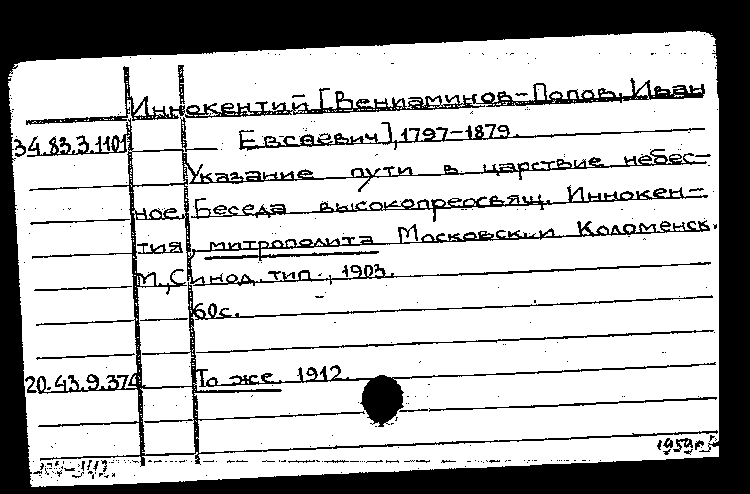 Иннокентий [Вениаминов-Попов, Иван
34.83.3.1101 Евсеевич], 1797-1879.
Указание пути в царствие небес-
ное. Беседа высокопреосвящ. Иннокен-
тия, митрополита Московск. и Коломенск.
М., Синод. тип., 1903.
60с.
20.43.9.374. То же. 1912.
1959г.